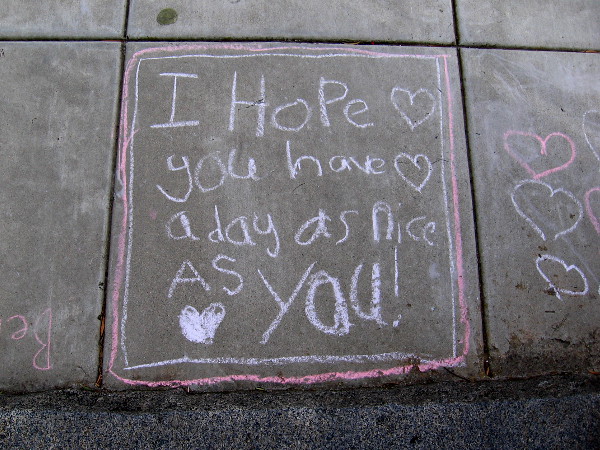 I HoPe
you have
a day as nice
AS you!
Be